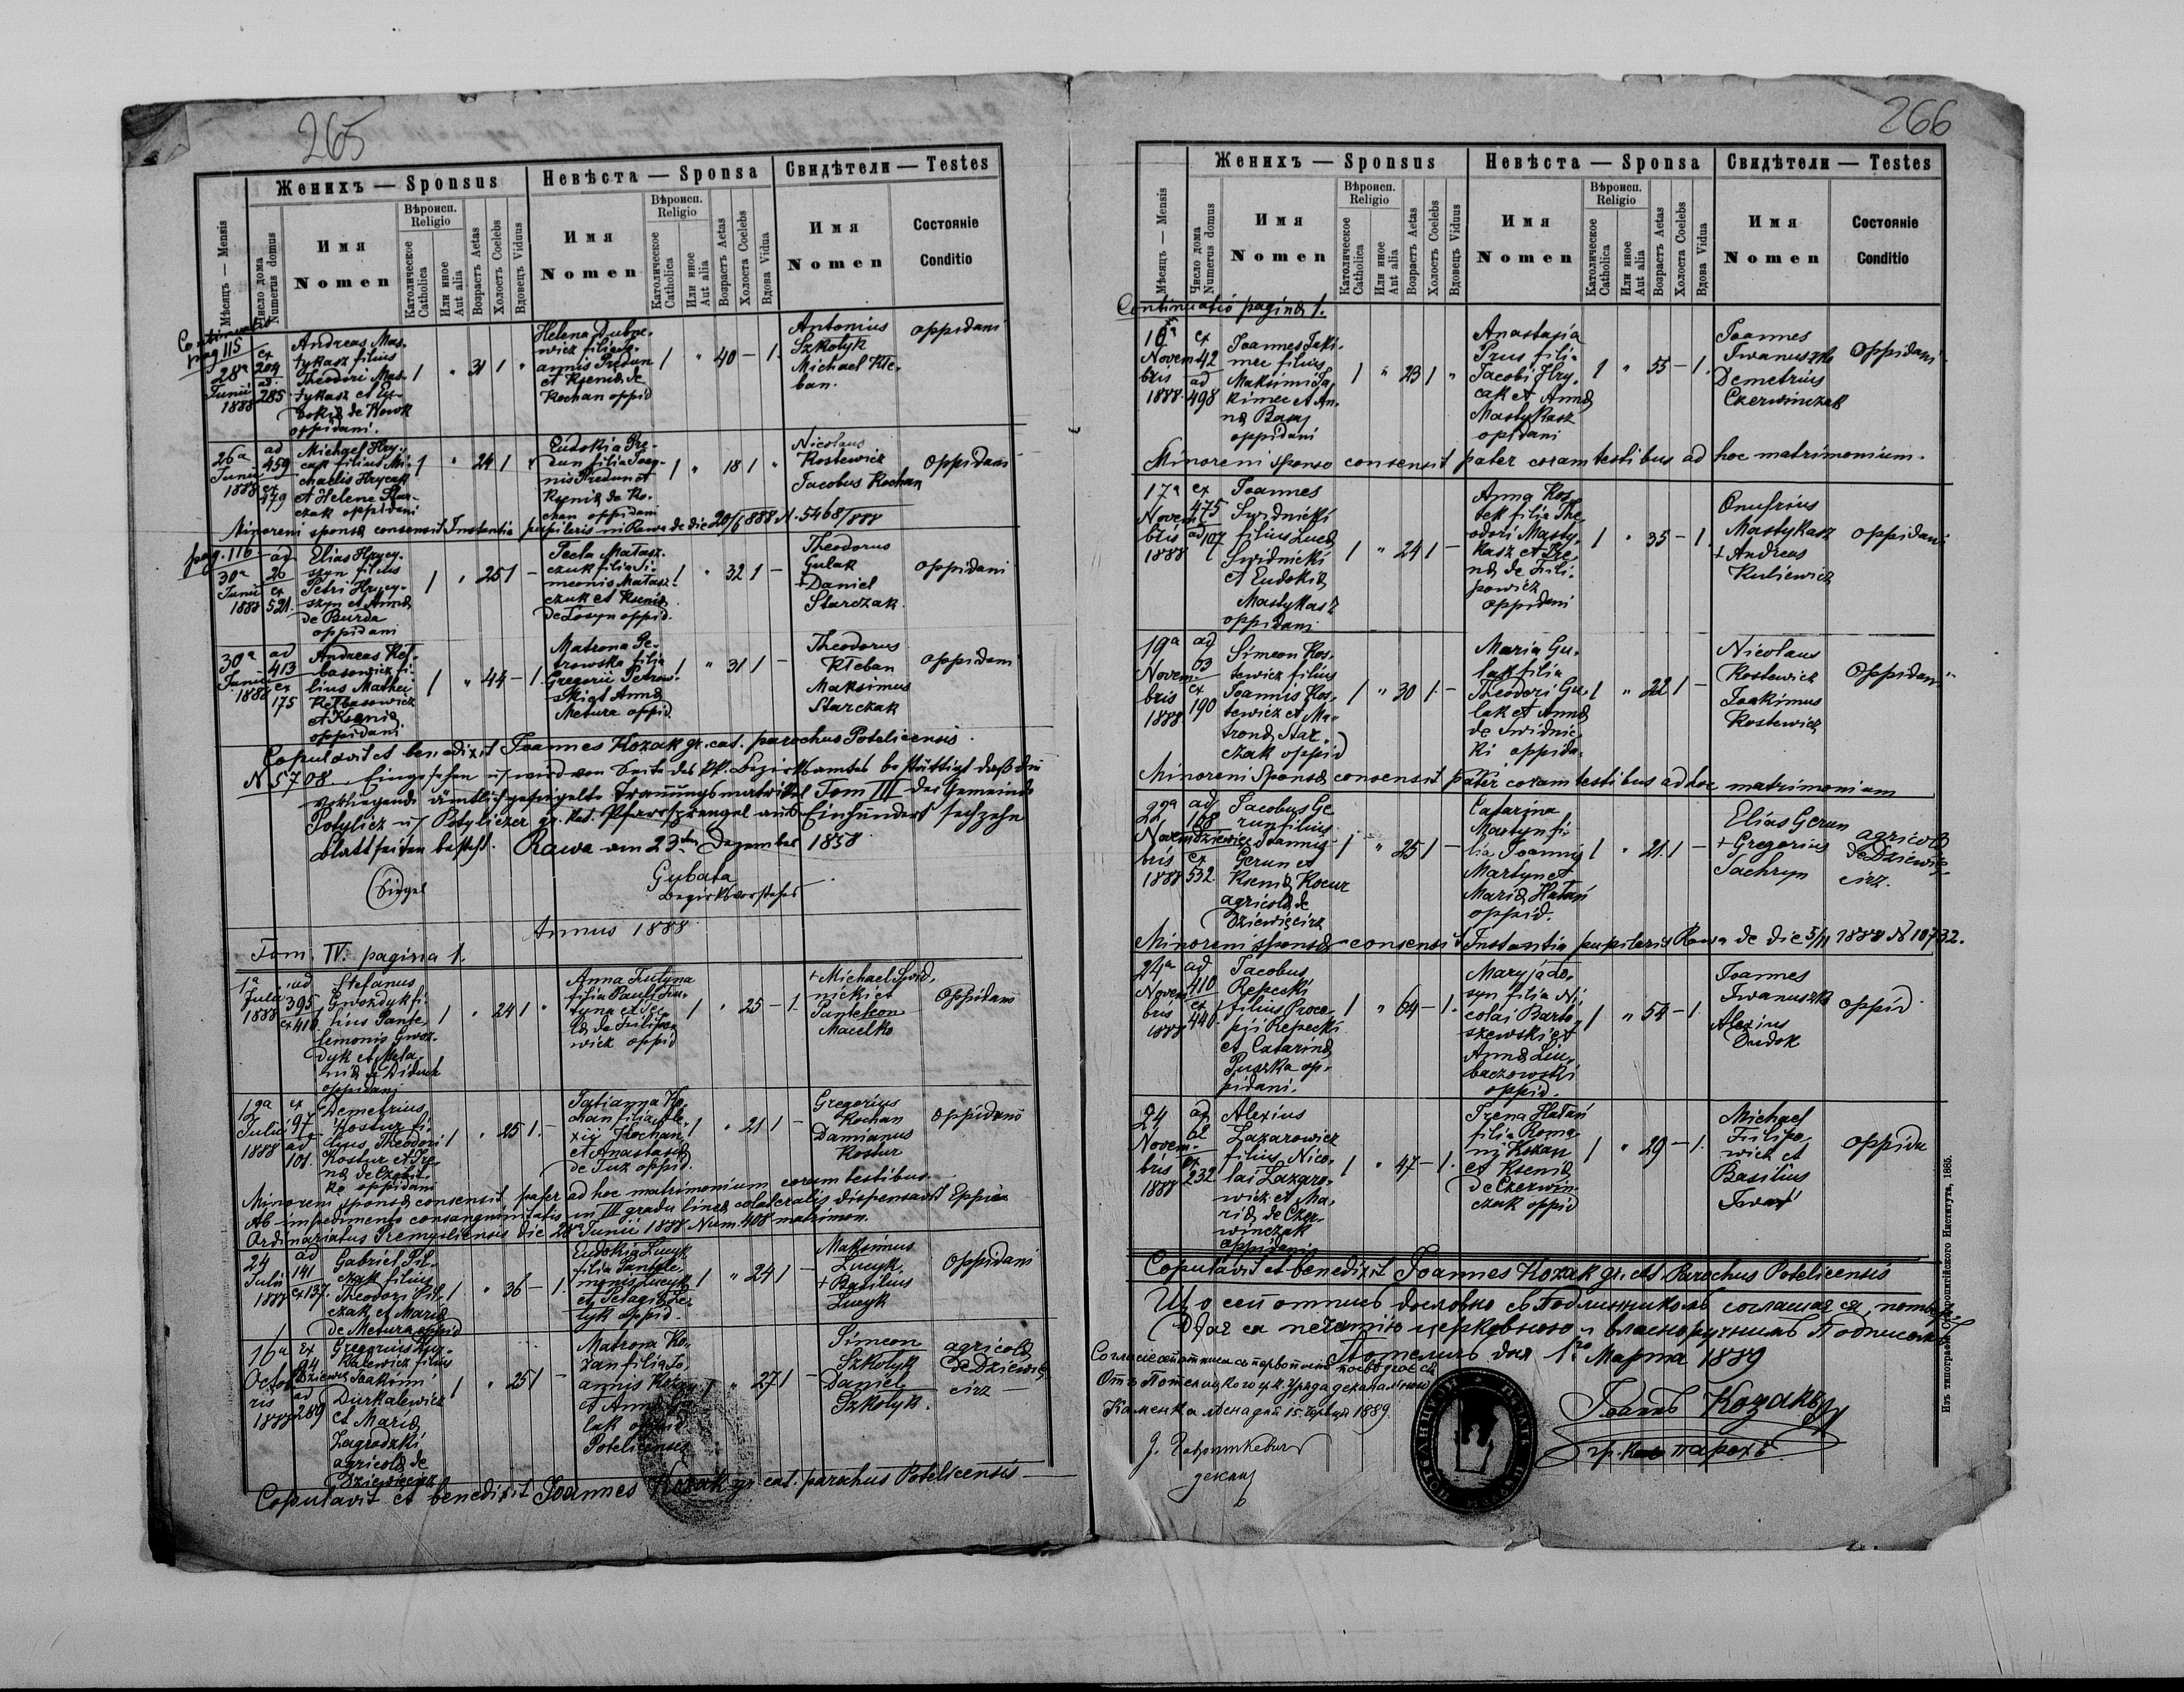 265
Женихъ — Sponsus
Невѣста — Sponsa
Свидѣтели — Testes
Мѣсяцъ — Mensis
Число дома
Numerus domus
Имя
Nomen
Вѣроисп.
Religio
Католическое
Catholica
Или иное
Aut alia
Возрастъ Aetas
Холостъ Coelebs
Вдовецъ Viduus
Имя
Nomen
Вѣроисп.
Religio
Католическое
Catholica
Или иное
Aut alia
Возрастъ Aetas
Холоста Coelebs
Вдова Vidua
Имя
Nomen
Состояніе
Conditio
Continuatio
pag 115
28ª
Junii
1888
ex
204
ad
285
Andreas Mas-
tykasz filius
Theodori Mas-
tykasz et
de Kowk
oppidani.
1 " 31 1 "
Helena Dubne-
wicz filia Jo-
annis Predun
et Ksenia de
Kochan oppid
1 " 40 — 1.
Antonius
Szkolyk
Michael Kle-
ban.
oppidani
26ª
Junii
1888
ad
459
ex
179
Michael Hry-
cak filius Mi-
chaelis Hrycak
et Helene Star-
czak oppidani
1 " 24 1 "
Eudokia Pre-
dun filia Joan-
nis Predun et
Ksenia de Ko-
chan oppidani
1 " 18 1 "
Nicolaus
Kostewicz
Jacobus Kochan
oppidani
Minoreni sponsa consensit Instantia pupilaris in Rawa de die 20/6 888 N. 5468/888
pag. 116
30ª
Junii
1888
ad
26
ex
521.
Elias Hrycy-
szyn filius
Petri Hrycy-
szyn et Anna
de Burda
oppidani
1 " 25 1 —
Pecla Matasz-
czuk filia Si-
meonis Matasz-
czuk et Ksenia
de Losyn oppid.
1 " 32 1 —
Theodorus
Gulak
+ Daniel
Starczak.
oppidani
30ª
Junii
1888
ad
413
ex
175
Andreas Kel-
basowicz fi-
lius Mathei
Kelbasowicz
et Ksenia
oppidani
1 " 44 — 1.
Matrona Pe-
trowska filia
Gregorii Petrow-
ski et Anna
Metura oppid.
1 " 31 1 —
Theodorus
Kleban
Maksimus
Starczak
oppidani
Copulavit et benedixit Joannes Kozak gr. cat. parochus Potelicensis.
N 5708 Eingesehen u. wird von Seite des kk. Bezirksamtes bestättigt daß die
vorliegende ämtlich gesiegelte Trauungsmatrikel Tom III der Gemeinde
Potylicz u. Potyliczer gr. kat. Pfarrsprengel aus Einhundert sechzehn
Blattseiten besteht. Rawa am 23ten Dezember 1858.
Siegel
Gubata
Bezirksvorsteher
Annus 1888
Tom. IV. pagina 1.
1ª
Julii
1888
ad
395
ex 410
Stefanus
Gwozdyk fi-
lius Pante-
lemonis Gwoz-
dyk et Mela-
nia de Diduch
oppidani
1 " 24 1 "
Anna Tutyna
filia Pauli Tu-
tyna et Tec-
la de Filipo-
wicz oppid
1 " 25 — 1.
+ Michael Swid-
nicki et
Panteleon
Macelko
Oppidani
12ª
Julii
1888
ex
97
ad
101.
Demetrius
Kostur fi-
lius Theodori
Kostur et Ire-
na de Czobit-
ko oppidani
1 " 25 1. —
Tatianna Ko-
chan filia Ale-
xii Kochan
et Anastasia
de Tuz oppid.
1 " 21 1 —
Gregorius
Kochan
Damianus
Kostur
oppidani
Minoreni sponsa consensit pater ad hoc matrimonium coram testibus.
Ab impedimento consanguinitatis in III gradu linea colateralis dispensavit Eppus
Ordinariatus Premysliensis die 28ª Junii 1888 Num. 408 matrimon.
24
Julii
1888
ad
141
ex 137.
Gabriel Pil-
czak filius
Theodori Pil-
czak et Maria
de Metura oppid
1 " 36 — 1.
Eudokia Lucyk
filia Pantele-
monis Lucyk
et Pelagia Le-
lyk oppid.
1 " 24 1 —
Maksimus
Lucyk.
+ Basilius
Lucyk
Oppidani
16ª
Octob
ris
1888
Ex
94
Dziewiec
ad
289
Gregorius Dur-
kalewicz filius
Joakimi
Durkalewicz
et Maria
Zagrodzki
agricola de
Dziewiecierz
1 " 25 1 —
Matrona Ko-
zan filia Jo-
annis Kozan
et Anna Gu-
lak oppid.
Potelicenses
1 " 27 1 —
Simeon
Szkolyk
Daniel
Szkolyk.
agricola
de Dziewie-
cirz —
Copulavit et benedixit Joannes Kozak gr. cat. parochus Potelicensis —
266
Женихъ — Sponsus
Невѣста — Sponsa
Свидѣтели — Testes
Мѣсяцъ — Mensis
Число дома
Numerus domus
Имя
Nomen
Вѣроисп.
Religio
Католическое
Catholica
Или иное
Aut alia
Возрастъ Aetas
Холостъ Coelebs
Вдовецъ Viduus
Имя
Nomen
Вѣроисп.
Religio
Католическое
Catholica
Или иное
Aut alia
Возрастъ Aetas
Холоста Coelebs
Вдова Vidua
Имя
Nomen
Состояніе
Conditio
Continuatio pagina 1.
Novem
bris
1888.
ex
42
ad
498
Joannes Jaki-
mec filius
Maksimi Ja-
kimec et An-
na Basaj
oppidani
1 " 23 1 "
Anastasia
Prus fili-
Jacobi Hry-
cak et Anna
Mastykasz
opidani
1 " 55 — 1.
Joannes
Iwanuszko
Demetrius
Czerwinczak
Oppidani
Minoreni sponso consensit pater coram testibus ad hoc matrimonium.
17ª
Novem
bris
1888
ex
475
ad 107
Joannes
Swidnicki
filius Luca
Swidnicki
et Eudokia
Mastykasz
oppidani
1 " 24 1 —
Anna Kos-
tek filia The-
odori Masty-
kasz et Ire-
na de Fili-
powicz
oppidani
1 " 35 — 1.
Onufrius
Mastykasz
+ Andreas
Kuliewicz
oppidani
19ª
Novem-
bris
1888
ad
63
ex
190
Simeon Kos-
tewicz filius
Joannis Kos-
tewicz et Ma-
trona Star-
czak oppid
1 " 30 1. —
Maria Gu-
lak filia
Theodori Gu-
lak et Anna
de Swidnic-
ki oppida.
1 " 22 1 —
Nicolaus
Kostewicz
Joakimus
Kostewicz
Oppidani
Minoreni Sponsa consensit pater coram testibus ad hoc matrimonium
22ª
Novem
bris
1888
ad
168
Dziewiec
ex
532.
Jacobus Ge
run filius
Joannis
Gerun et
Ksenia Kocur
agricola de
Dziewiecirz
1 " 25 1 —
Catarina
Martyn fi-
lia Joannis
Martyn et
Maria Hatasi
oppid.
1 " 21. 1 —
Elias Gerun
+ Gregorius
Sachryn
agricola
de Dziewie-
cirz.
Minoreni sponsa consensit Instantia pupilaris Rawa de die 5/11 1888 N 10732.
24ª
Novem
bris
1888
ad
410
ex
440
Jacobus
Repecki
filius Proco-
pji Repecki
et Catarina
Puszka op-
pidani.
1 " 64 — 1.
Maryja Lo-
syn filia Ni-
colai Barto-
szewski et
Anna Lu-
baczowski
oppid.
1 " 54 — 1.
Joannes
Iwanuszko
Alexius
Dudok
oppid
24
Novem-
bris
1888
ad
ex
232
Alexius
Lazarowicz
filius Nico-
lai Lazaro-
wicz et Ma-
ria de Czer-
winczak
oppidanis
1 " 47 — 1.
Irena Hatasi
filia Roma-
nj Kozan
et Ksenia
de Czerwin-
czak oppid
1 " 29 — 1.
Michael
Filipo-
wicz et
Basilius
Iwas
oppida
Copulavit et benedixit Joannes Kozak gr. cat. Parochus Potelicensis
Що сей отписъ дословно съ Подлинникомъ соглашается, потвер-
ждаеся печатію церковною и власноручнымъ Подписомъ.
Потеличь дня 1го Марта 1889
Отъ Потелицкого гр. к. Уряда деканального
Каменка лѣсна дня 15. Червця 1889.
декан
Іоаннъ Козакъ
гр. кат. парохъ
Изъ типографіи Ставропигійского Института, 1885.